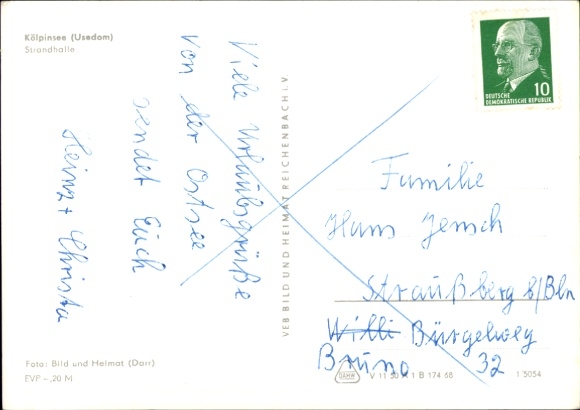 Kölpinsee (Usedom)
Strandhalle
Viele Urlaubsgrüße
von der Ostsee
sendet Euch
Heinz + Christa
VEB BILD UND HEIMAT REICHENBACH I. V.
10
DEUTSCHE
DEMOKRATISCHE REPUBLIK
Familie
Hans Jensch
Straußberg b/Bln
Willi Bürgelweg
Bruno 32
Foto: Bild und Heimat (Darr)
EVP –,20 M
V 11 50 A 1 B 174 68
1 5054